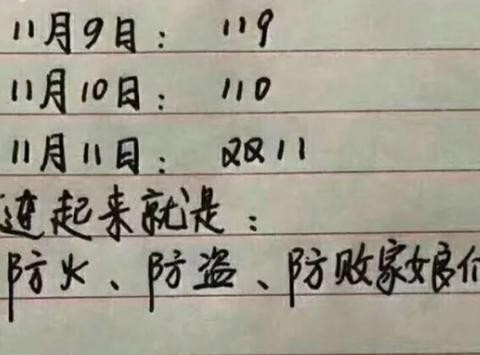 11月9日： 119
11月10日： 110
11月11日： 双11
连起来就是：
防火、防盗、防败家娘